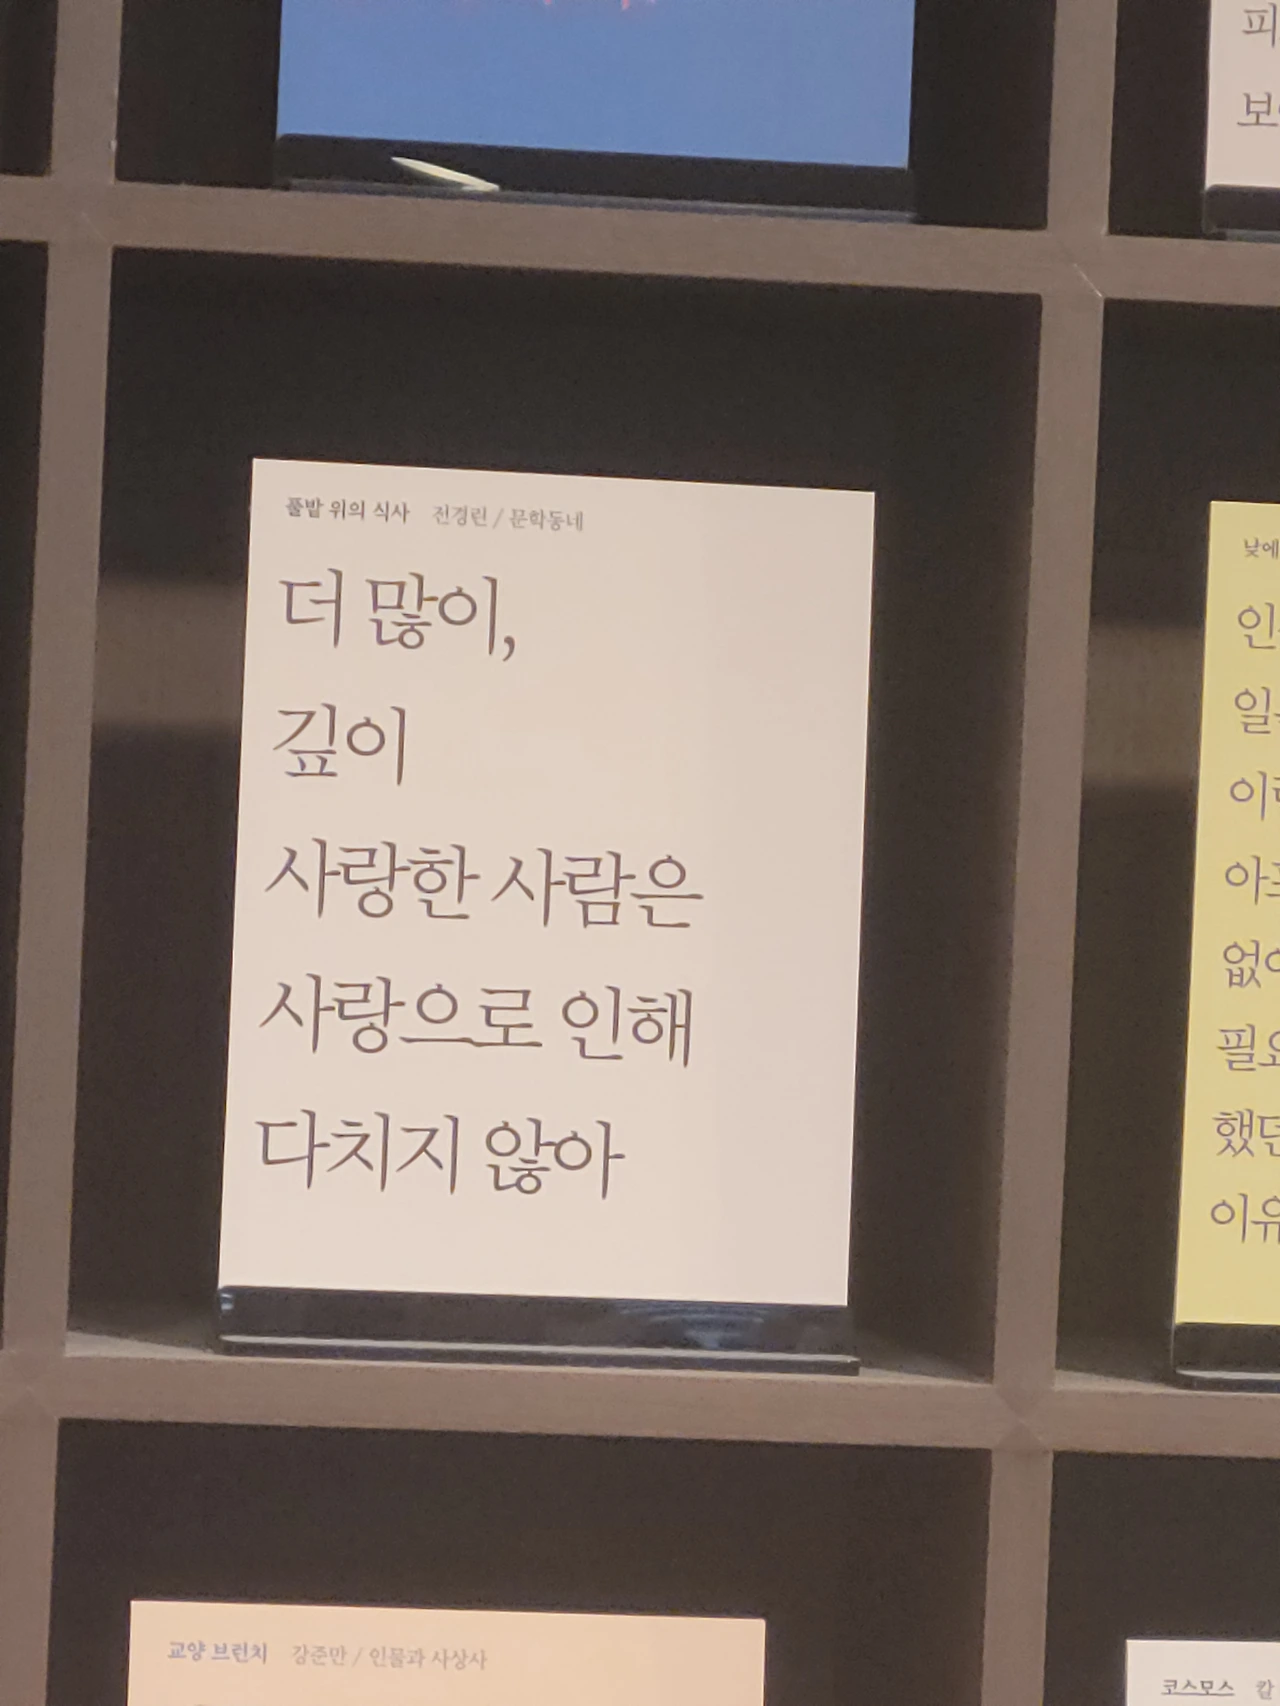 피
보
풀밭 위의 식사 전경린 / 문학동네
더 많이,
깊이
사랑한 사람은
사랑으로 인해
다치지 않아
낮에
인
일
이
아
없
필요
했던
이유
교양 브런치 강준만 / 인물과 사상사
코스모스 칼